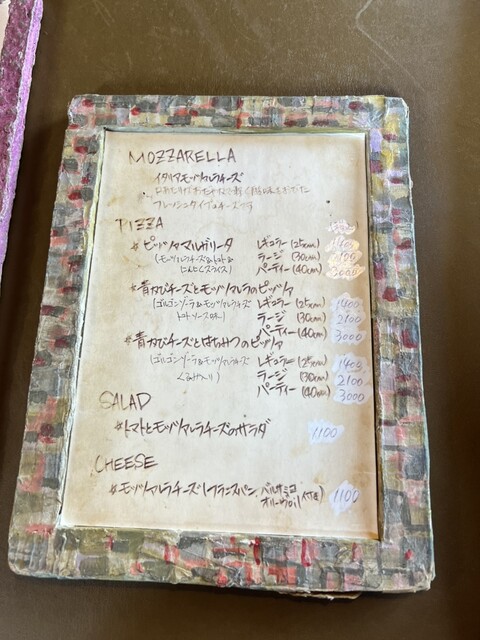 MOZZARELLA
イタリアモッツァレラチーズ
フレッシュタイプのチーズ
PIZZA
*ピッツァマルゲリータ レギュラー(25cm) 1400
(モッツァレラチーズ&トマト& ラージ(30cm) 2100
にんにくスライス) パーティー(40cm) 3000
*青カビチーズとモッツァレラのピッツァ
(ゴルゴンゾーラ&モッツァレラチーズ レギュラー(25cm) 1400
トマトソース ラージ(30cm) 2100
パーティー(40cm) 3000
*青カビチーズとはちみつのピッツァ
(ゴルゴンゾーラ&モッツァレラチーズ レギュラー(25cm) 1400
くるみ入り) ラージ(30cm) 2100
パーティー(40cm) 3000
SALAD
*トマトとモッツァレラチーズのサラダ 1100
CHEESE
*モッツァレラチーズ(フランスパン バルサミコ
オリーヴoil付き) 1100